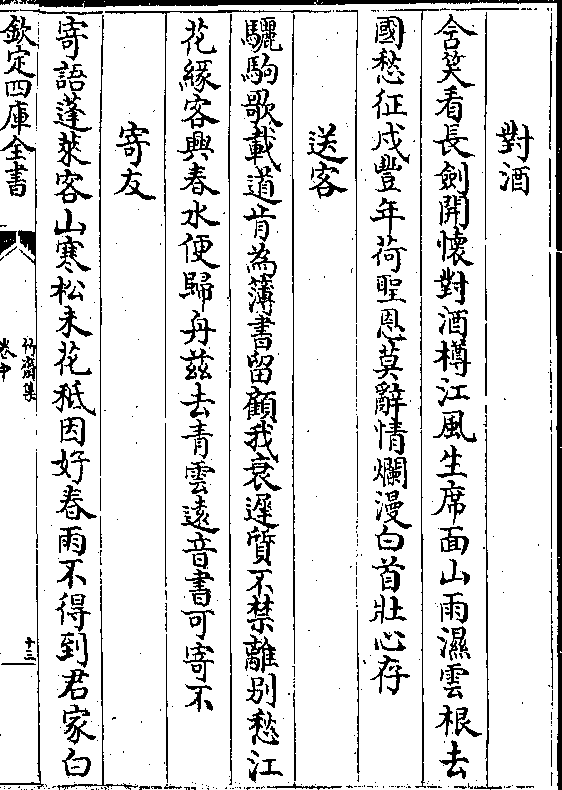 對酒
含笑看長劍開懷對酒樽江風生席面山雨濕雲根去
國愁征戍豐年荷聖恩莫辭情爛漫白首壯心存
送客
驪駒歌載道肯為簿書留顧我衰遲質不禁離别愁江
花緣客興春水便歸舟兹去青雲遠音書可寄不
寄友
寄語蓬萊客山寒松未花秪因好春雨不得到君家白
欽定四庫全書
竹齋集
卷中
十三